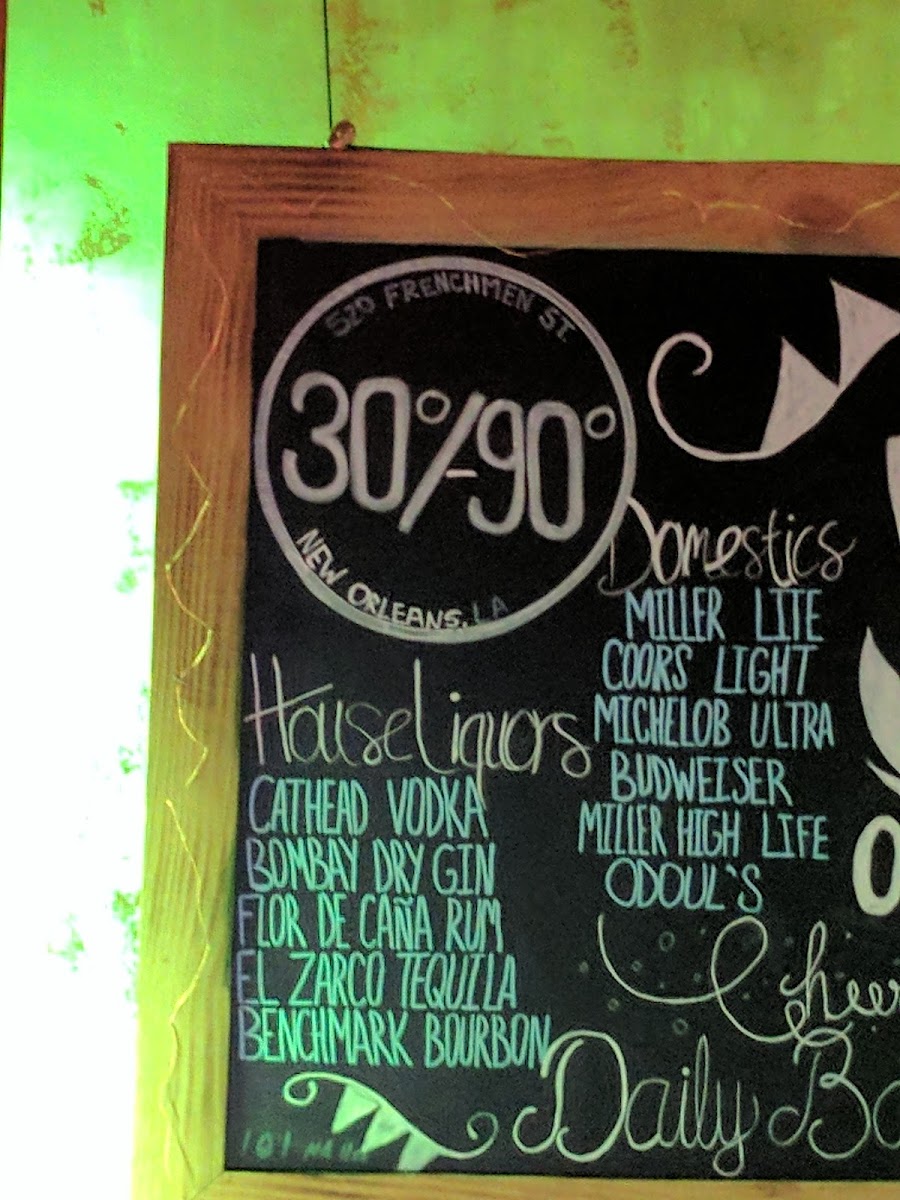 520 FRENCHMEN ST.
30°/-90°
NEW ORLEANS, LA
House Liquors
CATHEAD VODKA
BOMBAY DRY GIN
FLOR DE CAÑA RUM
EL ZARCO TEQUILA
BENCHMARK BOURBON
Domestics
MILLER LITE
COORS LIGHT
MICHELOB ULTRA
BUDWEISER
MILLER HIGH LIFE
ODOUL`S
Cheer
Daily